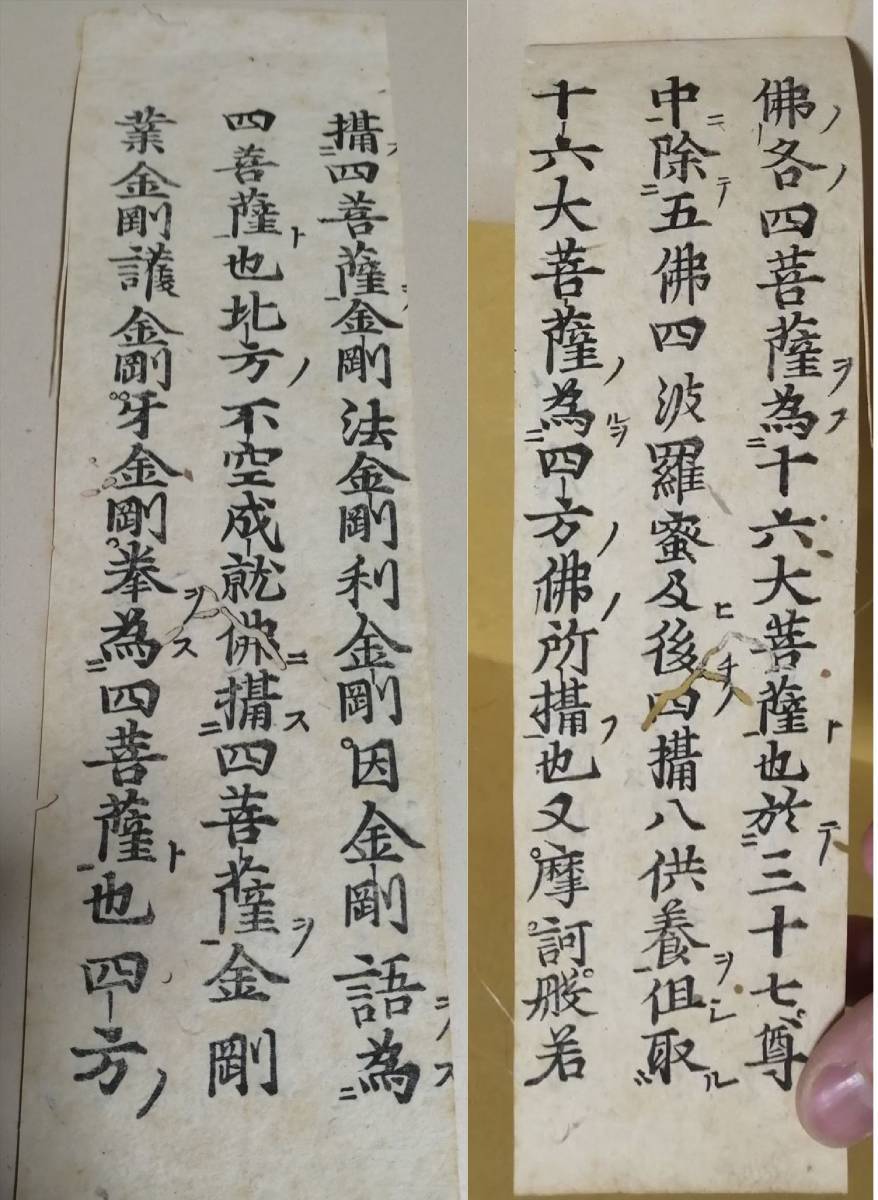 攝四菩薩金剛法金剛利金剛因金剛語為
四菩薩也北方不空成就佛攝四菩薩金剛
業金剛護金剛牙金剛拳為四菩薩也四方
佛各四菩薩為十六大菩薩也於三十七尊
中除五佛四波羅蜜及後四攝八供養但取
十六大菩薩為四方佛所攝也又摩訶般若